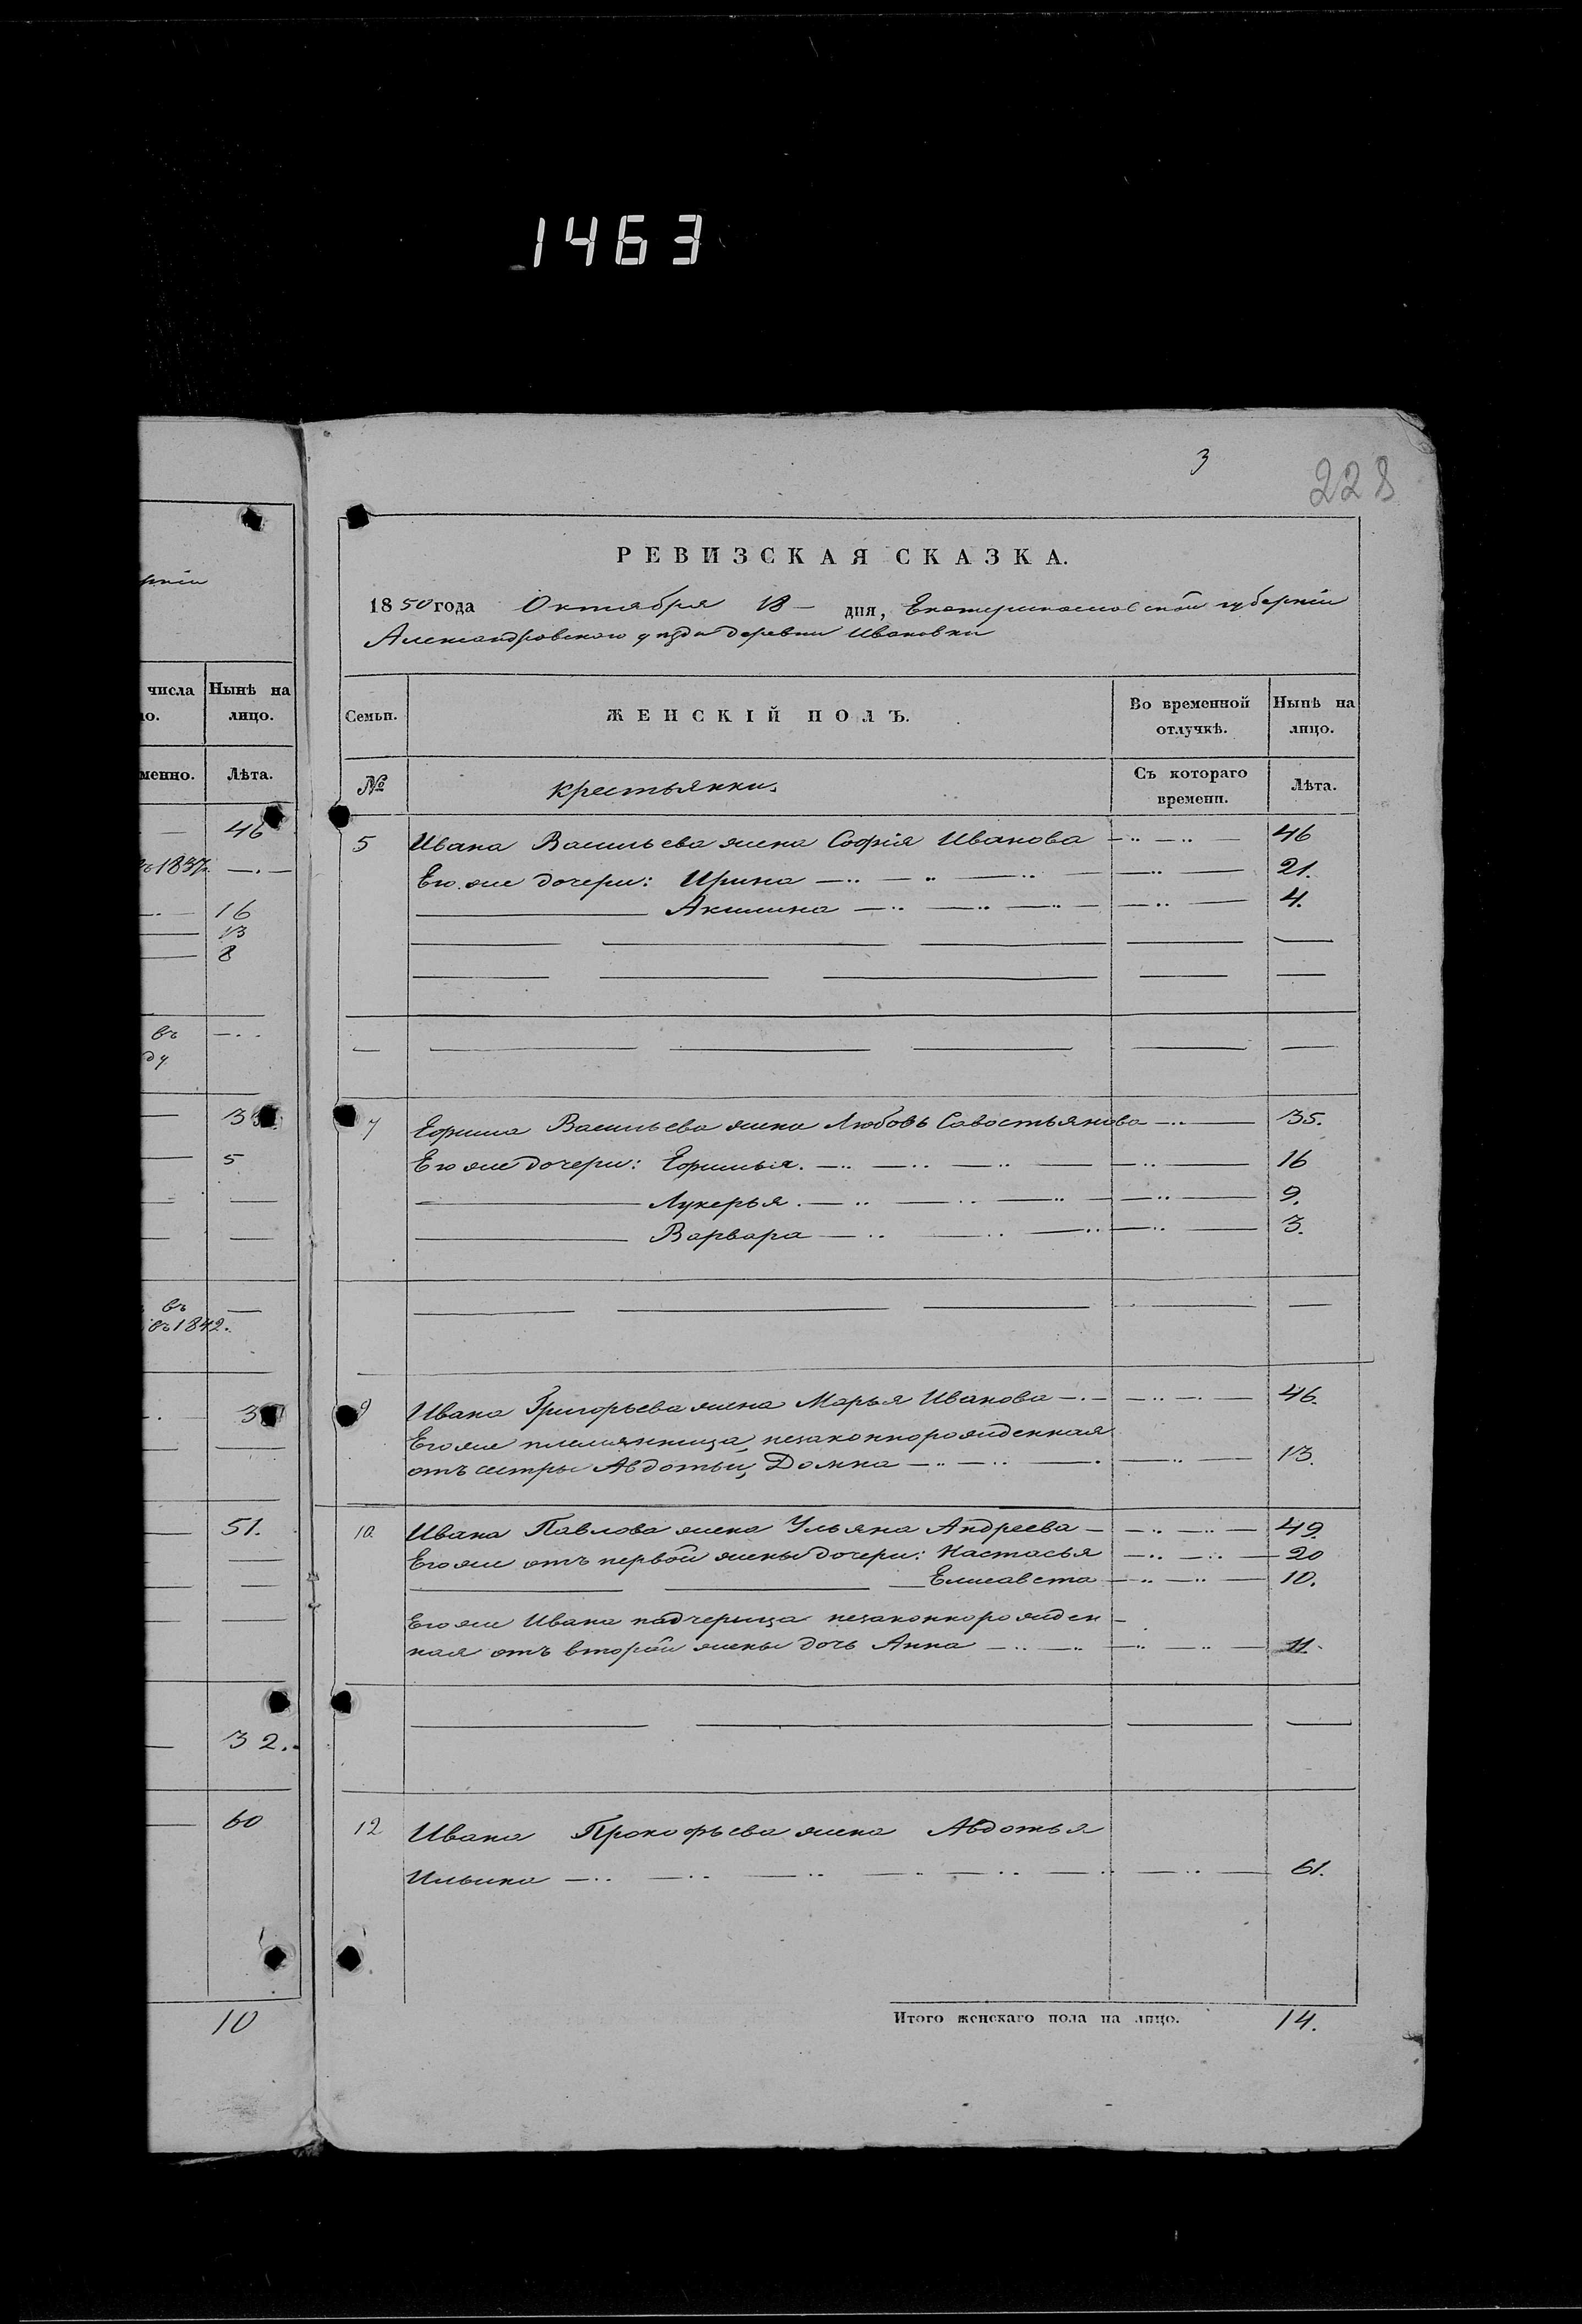 1463
3
228
рніи
числа Нынѣ на
ло. лицо.
менно. Лѣта.
46
въ 1837 —
16
13
8
въ —
ду
5
въ —
въ 1842.
51.
32.
60
10
РЕВИЗСКАЯ СКАЗКА.
1850 года Октября 13 дня, Екатеринославской губерніи
Александровскаго уѣзда деревни Ивановки
Семьи. ЖЕНСКІЙ ПОЛЪ. Во временной отлучкѣ. Нынѣ на лицо.
№ крестьянки. Съ котораго времени. Лѣта.
5 Ивана Васильева жена Софія Иванова 46
Его же дочери: Ирина 21.
Акилина 4.
7 Ефима Васильева жена Любовь Савостьянова 35.
Его же дочери: Ефимья. 16
Лукерья. 9.
Варвара 3.
9 Ивана Григорьева жена Марья Иванова 46.
Его же племянница, незаконнорожденная
отъ сестры Авдотьи, Домна 13.
10. Ивана Павлова жена Ульяна Андреева 49.
Его же отъ первой жены дочери: Настасья 20
Елисавета 10.
Его же Ивана падчерица незаконнорожден-
ная отъ второй жены дочь Анна 11.
12 Ивана Прокофьева жена Авдотья
Ильина 61.
Итого женскаго пола на лицо. 14.